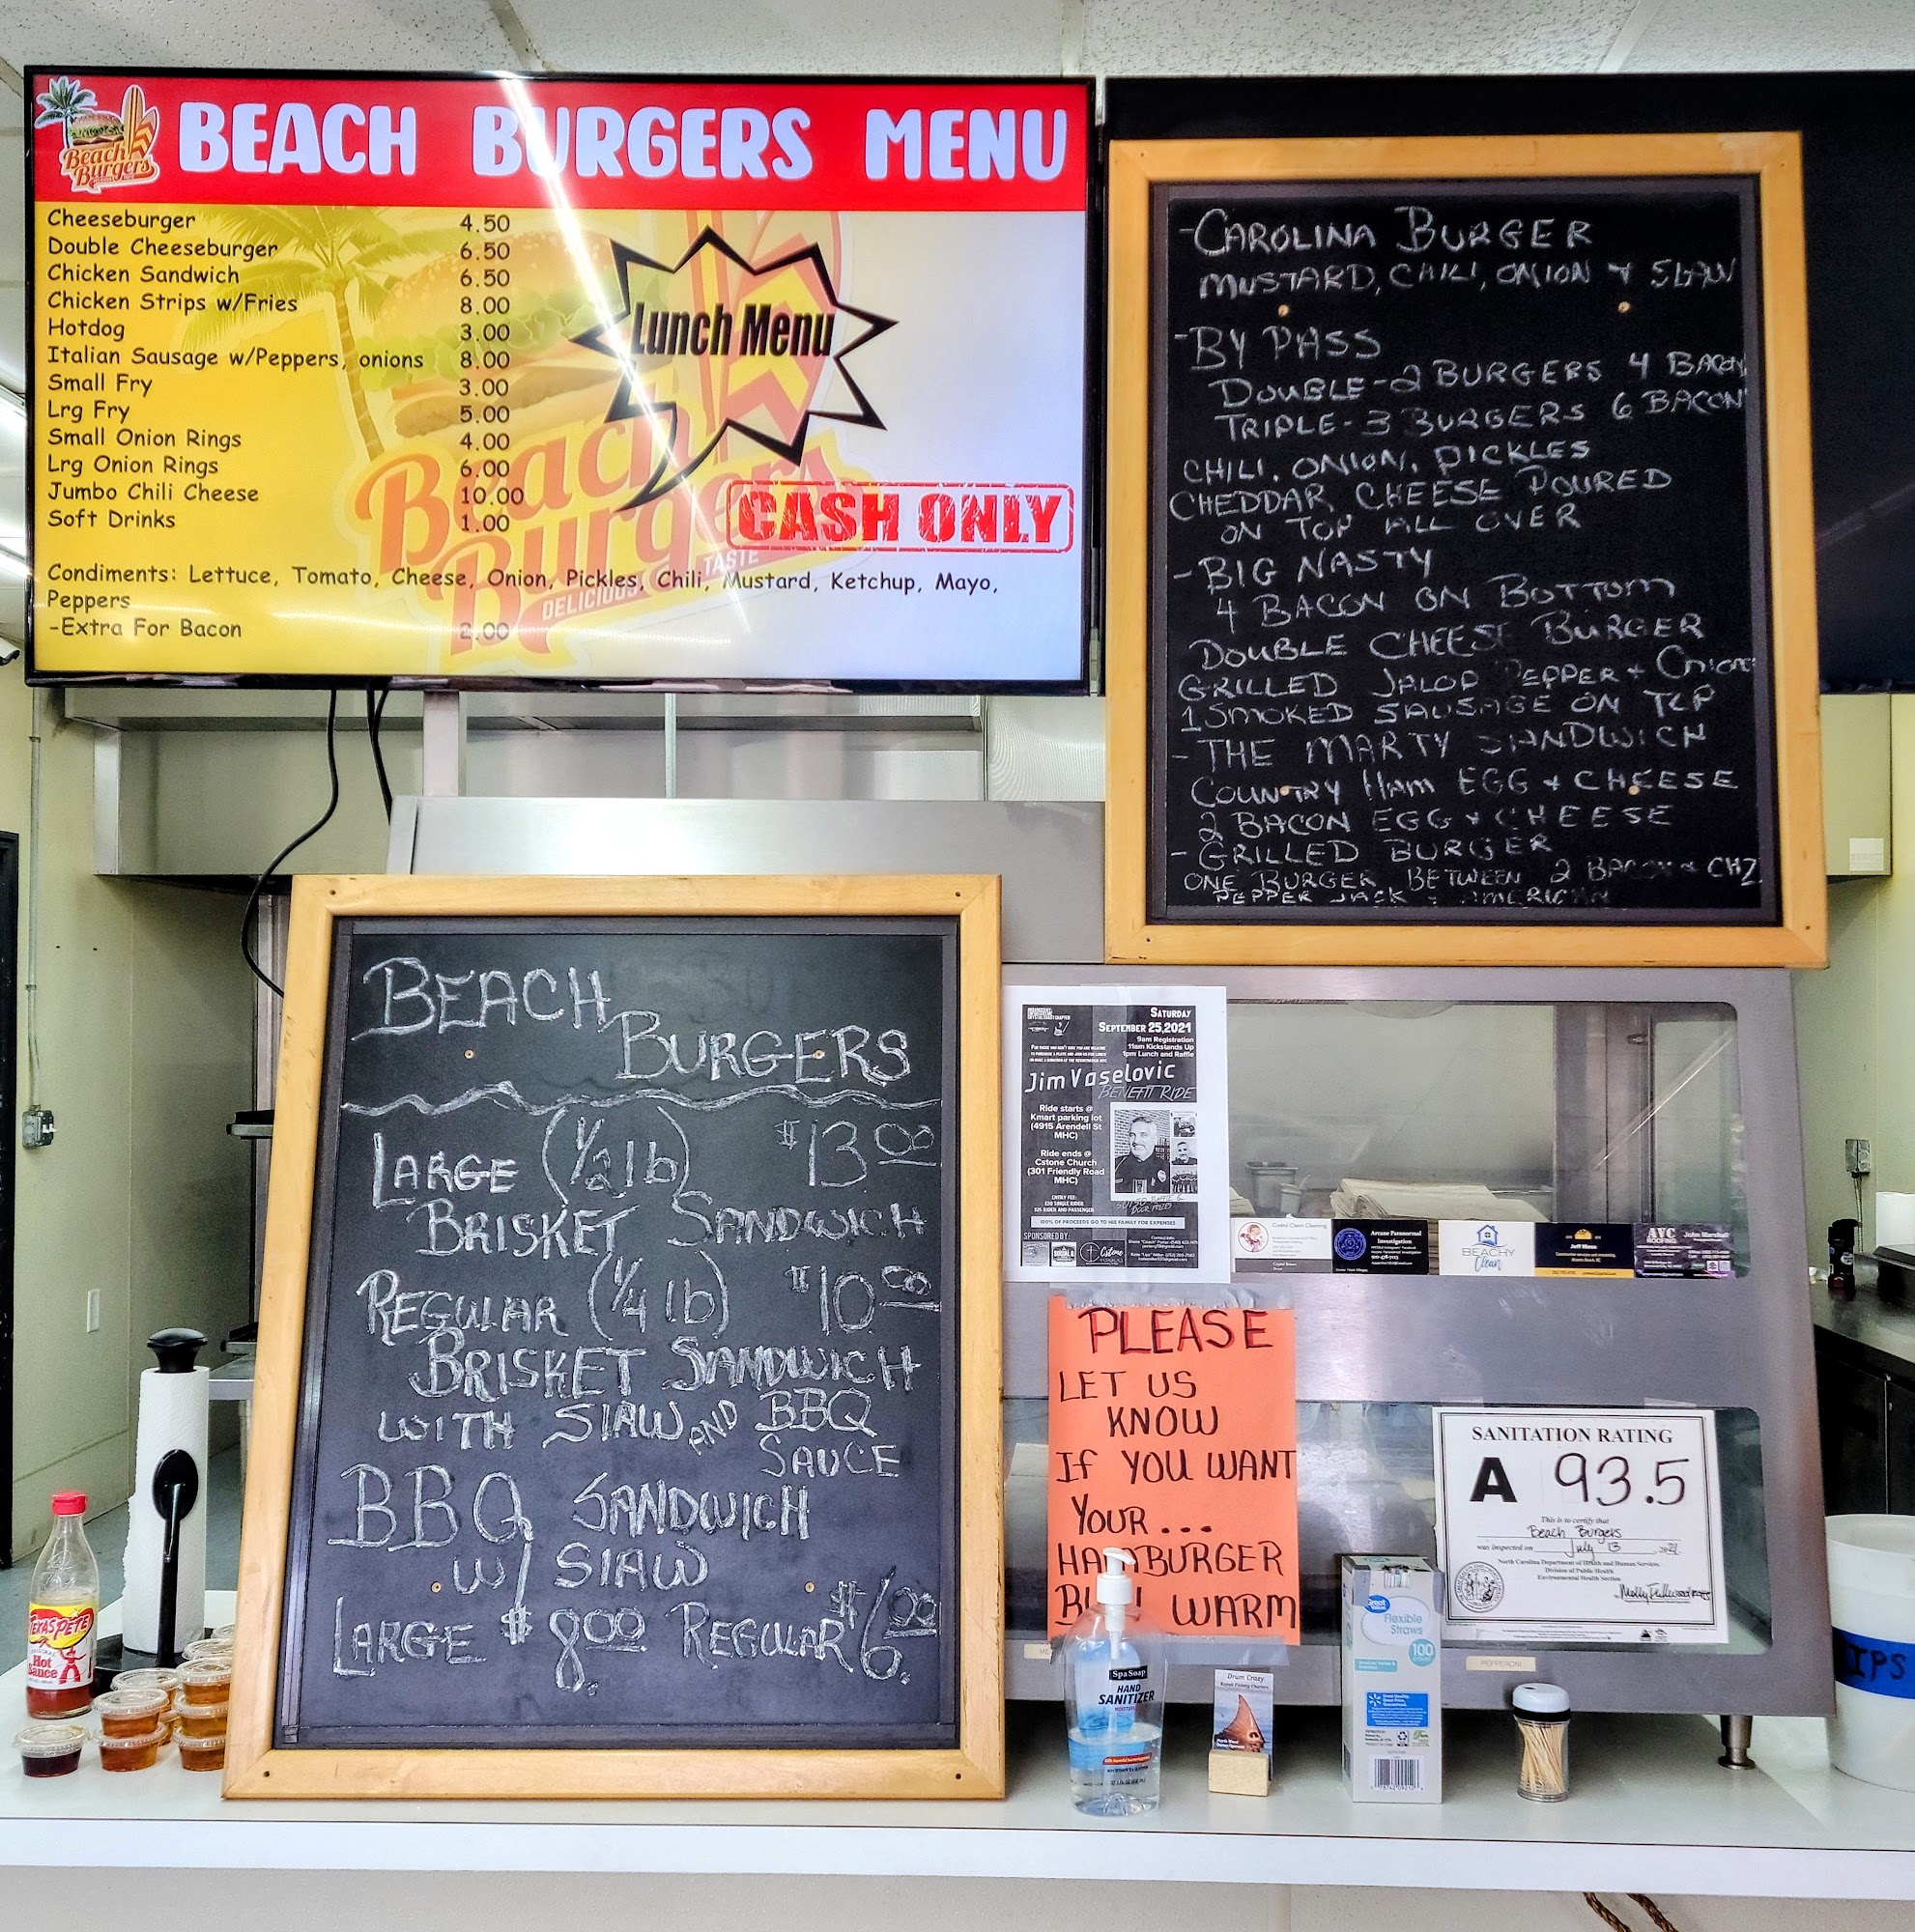 BEACH BURGERS MENU
Beach
Burgers
Cheeseburger 4.50
Double Cheeseburger 6.50
Chicken Sandwich 6.50
Chicken Strips w/Fries 8.00
Hotdog 3.00
Italian Sausage w/Peppers, onions 8.00
Small Fry 3.00
Lrg Fry 5.00
Small Onion Rings 4.00
Lrg Onion Rings 6.00
Jumbo Chili Cheese 10.00
Soft Drinks 1.00
Lunch Menu
CASH ONLY
Beach
Burgers
DELICIOUS TASTE
Condiments: Lettuce, Tomato, Cheese, Onion, Pickles, Chili, Mustard, Ketchup, Mayo,
Peppers
-Extra For Bacon 2.00
-CAROLINA BURGER
MUSTARD, CHILI, ONION + SLAW
-BY PASS
DOUBLE-2 BURGERS 4 BACON
TRIPLE-3 BURGERS 6 BACON
CHILI, ONION, PICKLES
CHEDDAR CHEESE POURED
ON TOP ALL OVER
-BIG NASTY
4 BACON ON BOTTOM
DOUBLE CHEESE BURGER
GRILLED JALOP PEPPER + ONION
1 SMOKED SAUSAGE ON TOP
-THE MARTY SANDWICH
COUNTRY HAM EGG + CHEESE
2 BACON EGG + CHEESE
-GRILLED BURGER
ONE BURGER BETWEEN 2 BACON & CHZ
PEPPER JACK + AMERICAN
BEACH
BURGERS
LARGE (1/2 lb) $13.00
BRISKET SANDWICH
REGULAR (1/4 lb) $10.00
BRISKET SANDWICH
WITH SlAW AND BBQ
SAUCE
BBQ SANDWICH
W/ SlAW
LARGE $8.00 REGULAR $6.00
SATURDAY
SEPTEMBER 25,2021
9am Registration
11am Kickstands Up
1pm Lunch and Raffle
Jim Vaselovic
BENEFIT RIDE
Ride starts @
Kmart parking lot
(4915 Arendell St
MHC)
Ride ends @
Cstone Church
(301 Friendly Road
MHC)
ENTRY FEE:
100% OF PROCEEDS GO TO HIS FAMILY FOR EXPENSES
SPONSORED BY:
Cstone
Crystal Clean Cleaning
Arcane Paranormal
Investigation
BEACHY
Clean
Jeff Moss
AVC
ROOFING
John Marshall
PLEASE
LET US
KNOW
IF YOU WANT
YOUR...
HAMBURGER
WARM
SANITATION RATING
A 93.5
This is to certify that
Beach Burgers
was inspected on July 13, 2021
North Carolina Department of Health and Human Services
Division of Public Health
Environmental Health Section
TEXAS PETE
Hot
Sauce
Spa Soap
HAND
SANITIZER
Drum Crazy
Great Value
Flexible
Straws
100
PEPPERONI
IPS